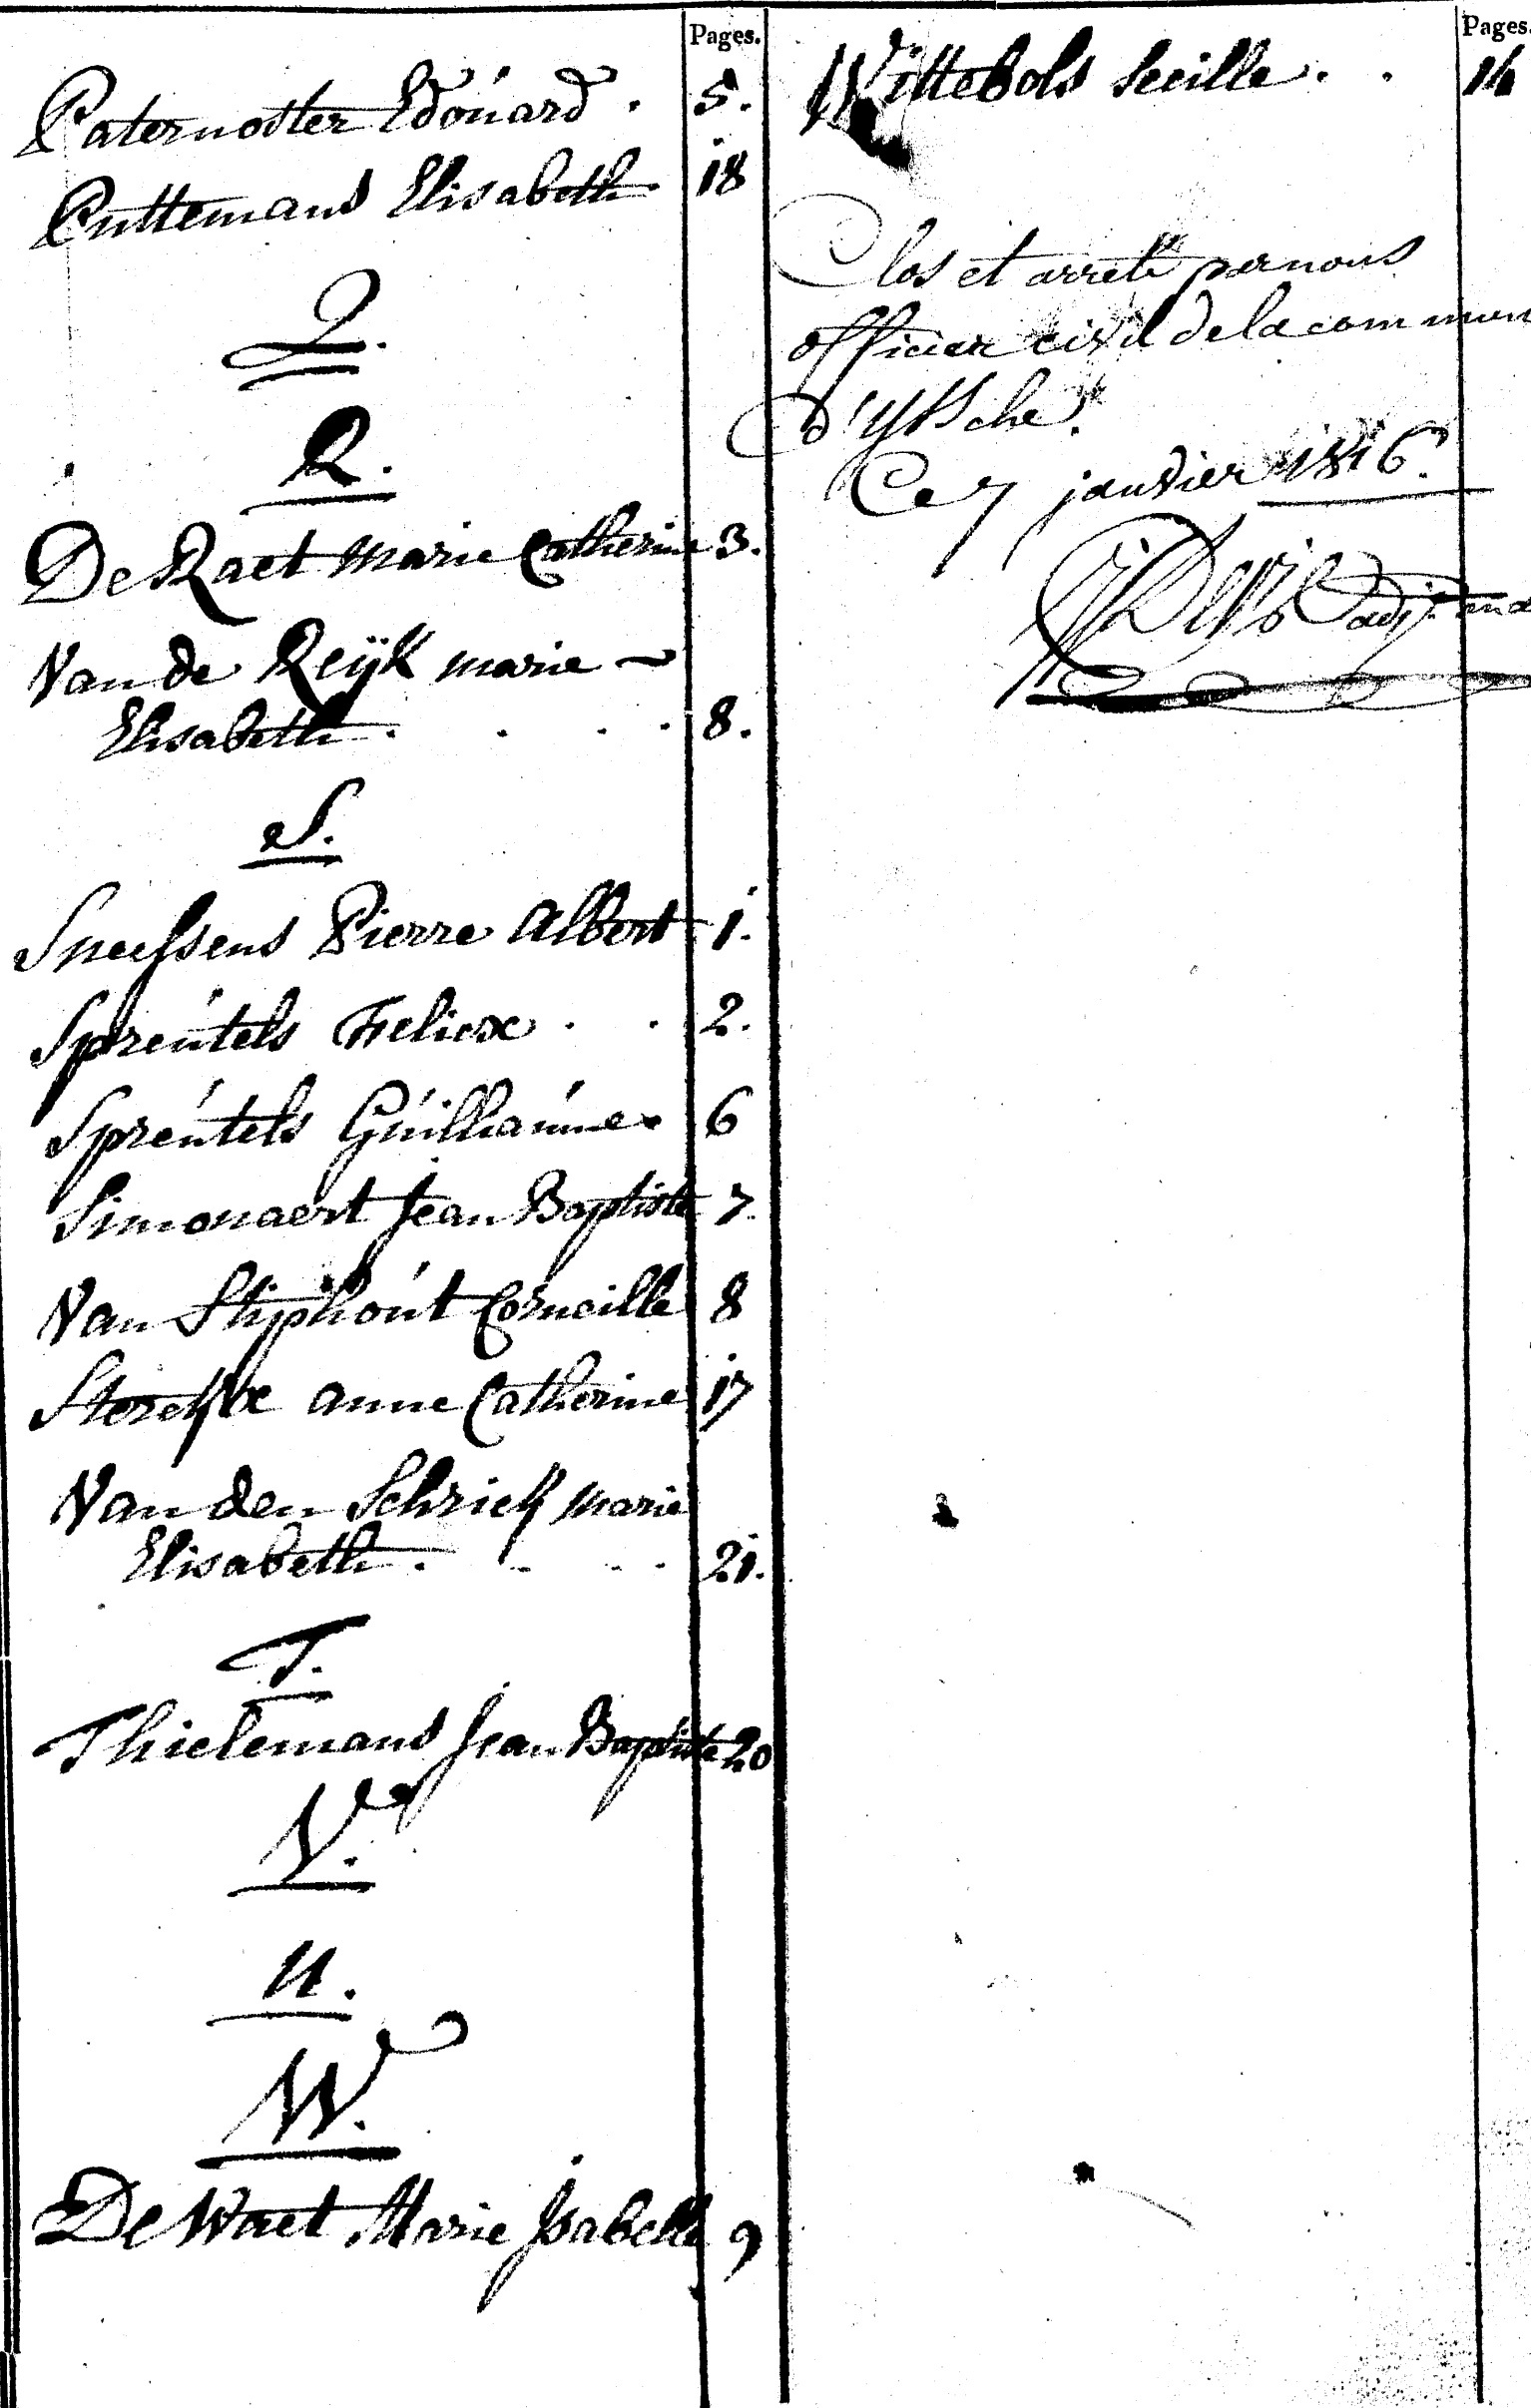 Pages.
Paternoster Edoúard . 5.
Puttemans Elisabeth 18
Q.
R.
De Raet Marie Catherine 3.
Van de Reÿk marie ~
Elisabeth . . . . 8.
S.
Sneessens Pierre Albert 1.
Spreútels Feliex . . 2.
Spreútels Gúilliaúme 6
Simonaert Jean Baptiste 7.
Van Stiphoút Corneille 8
Sterckx anne Catherine 17
Van den Schriek Marie
Elisabeth . . . . 21.
T.
Thielemans Jean Baptiste 20
V.
U.
W.
De Waet Marie Isabelle 9
Pages.
Wittebols Secille . . 14
Clos et arreté par nous
officier civil de la commun
d'Yssche.
Ce 7 janvier 1816.